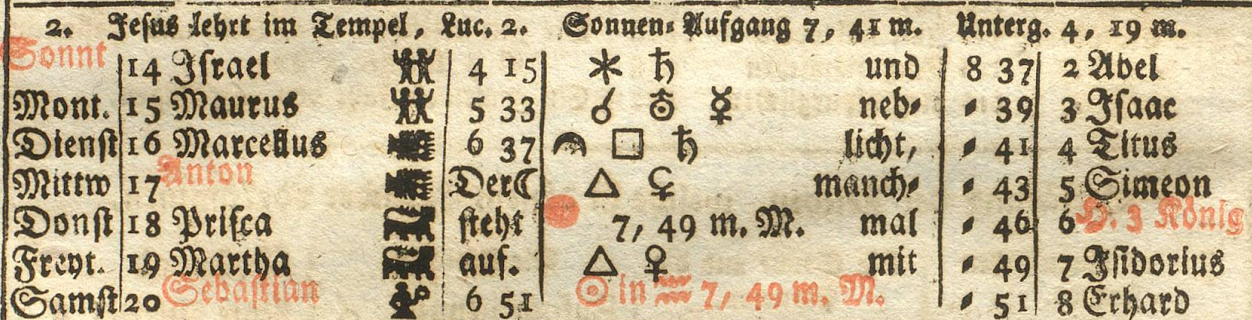 2. Jesus lehrt im Tempel, Luc. 2. Sonnen-Aufgang 7, 41 m. Unterg. 4, 19 m.
Sonnt 14 Jſrael 4 15 ⚹ ♄ und 8 37 2 Abel
Mont. 15 Maurus 5 33 ☌ ☿ neb- 39 3 Jſaac
Dienſt 16 Marcellus 6 37 □ ♄ licht, 41 4 Titus
Mittw 17 Anton Der☾ △ manch- 43 5 Simeon
Donſt 18 Priſca ſteht 7, 49 m. M. mal 46 6 H. 3 König
Freyt. 19 Martha auf. △ ♀ mit 49 7 Jſidorius
Samſt 20 Sebaſtian 6 51 ☉ in ♒ 7, 49 m. M. 51 8 Erhard